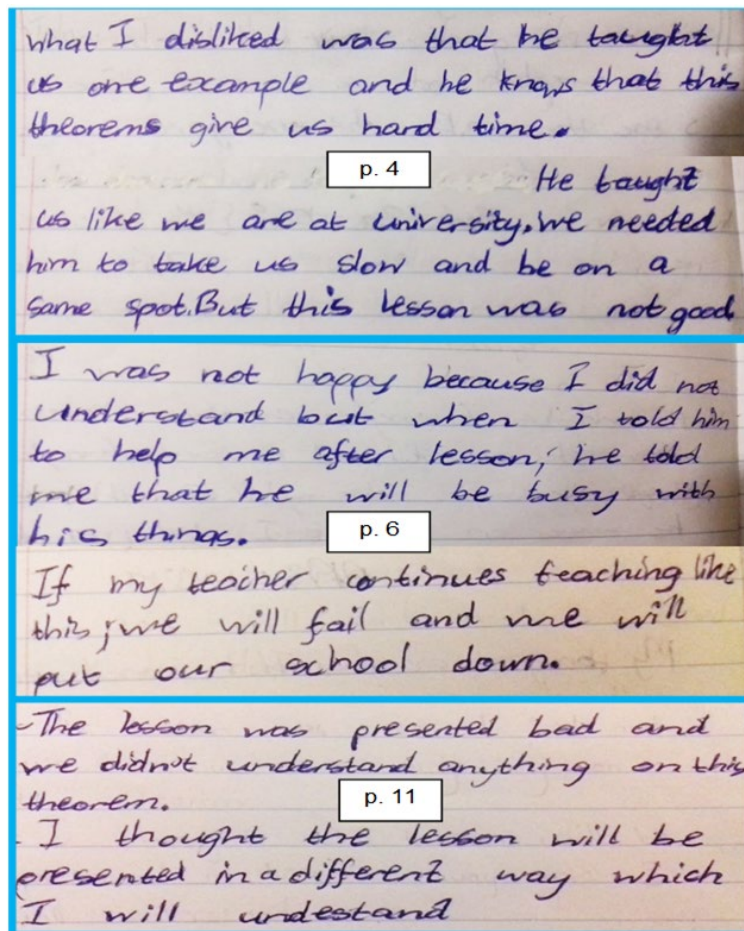 What I disliked was that he taught
us one example and he knows that this
theorems give us hard time.
p. 4
He taught
us like we are at university. We needed
him to take us slow and be on a
same spot. But this lesson was not good
I was not happy because I did not
understand but when I told him
to help me after lesson, he told
me that he will be busy with
his things.
p. 6
If my teacher continues teaching like
this, we will fail and we will
put our school down.
- The lesson was presented bad and
we didn't understand anything on this
theorem.
p. 11
- I thought the lesson will be
presented in a different way which
I will undestand